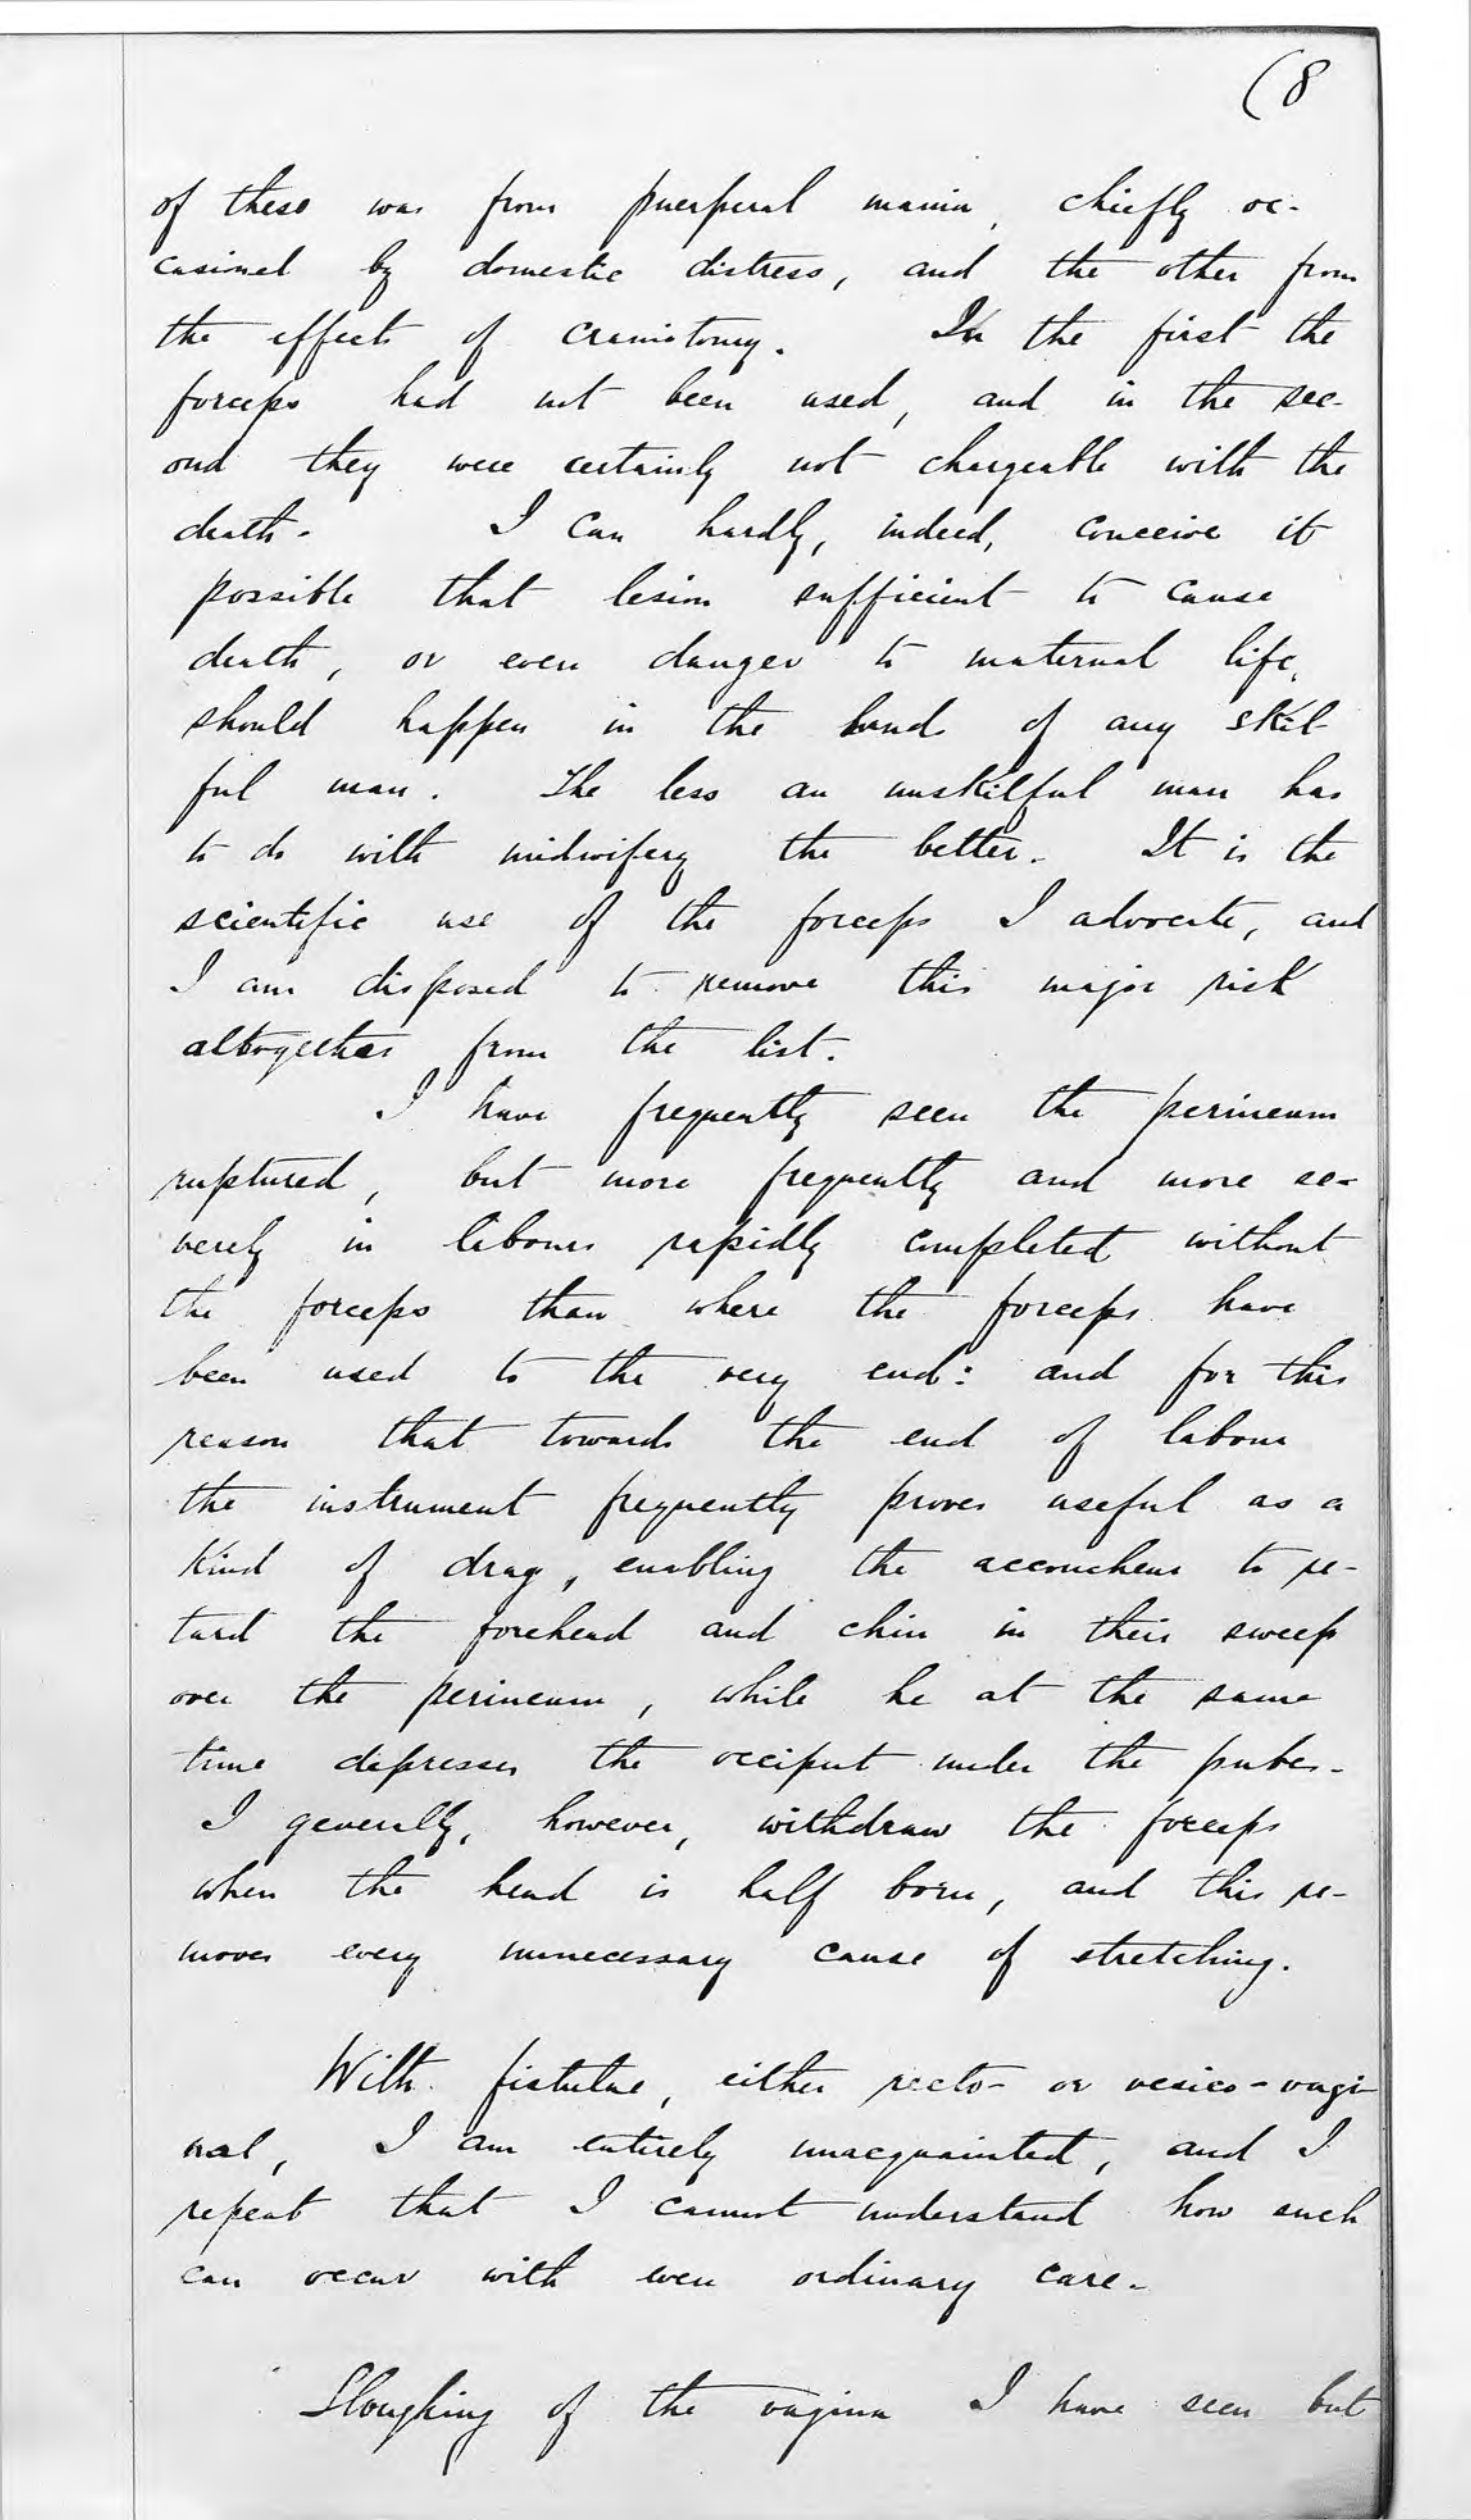 (8
of these was from puerperal mania, chiefly oc-
casioned by domestic distress, and the other from
the effects of craniotomy. In the first the
forceps had not been used, and in the sec-
ond they were certainly not chargeable with the
death. I can hardly, indeed, conceive it
possible that lesion sufficient to cause
death, or even danger to maternal life,
should happen in the hands of any skil-
ful man. The less an unskilful man has
to do with midwifery the better. It is the
scientific use of the forceps I advocate, and
I am disposed to remove this major risk
altogether from the list.
I have frequently seen the perineum
ruptured, but more frequently and more se-
verely in labours rapidly completed without
the forceps than where the forceps have
been used to the very end: and for this
reason that towards the end of labour
the instrument frequently proves useful as a
kind of drag, enabling the accoucheur to re-
tard the forehead and chin in their sweep
over the perineum, while he at the same
time depresses the occiput under the pubes.
I generally, however, withdraw the forceps
when the head is half born, and this re-
moves every unnecessary cause of stretching.
With fistulae, either recto- or vesico-vagi-
nal, I am entirely unacquainted, and I
repeat that I cannot understand how such
can occur with even ordinary care.
Sloughing of the vagina I have seen but